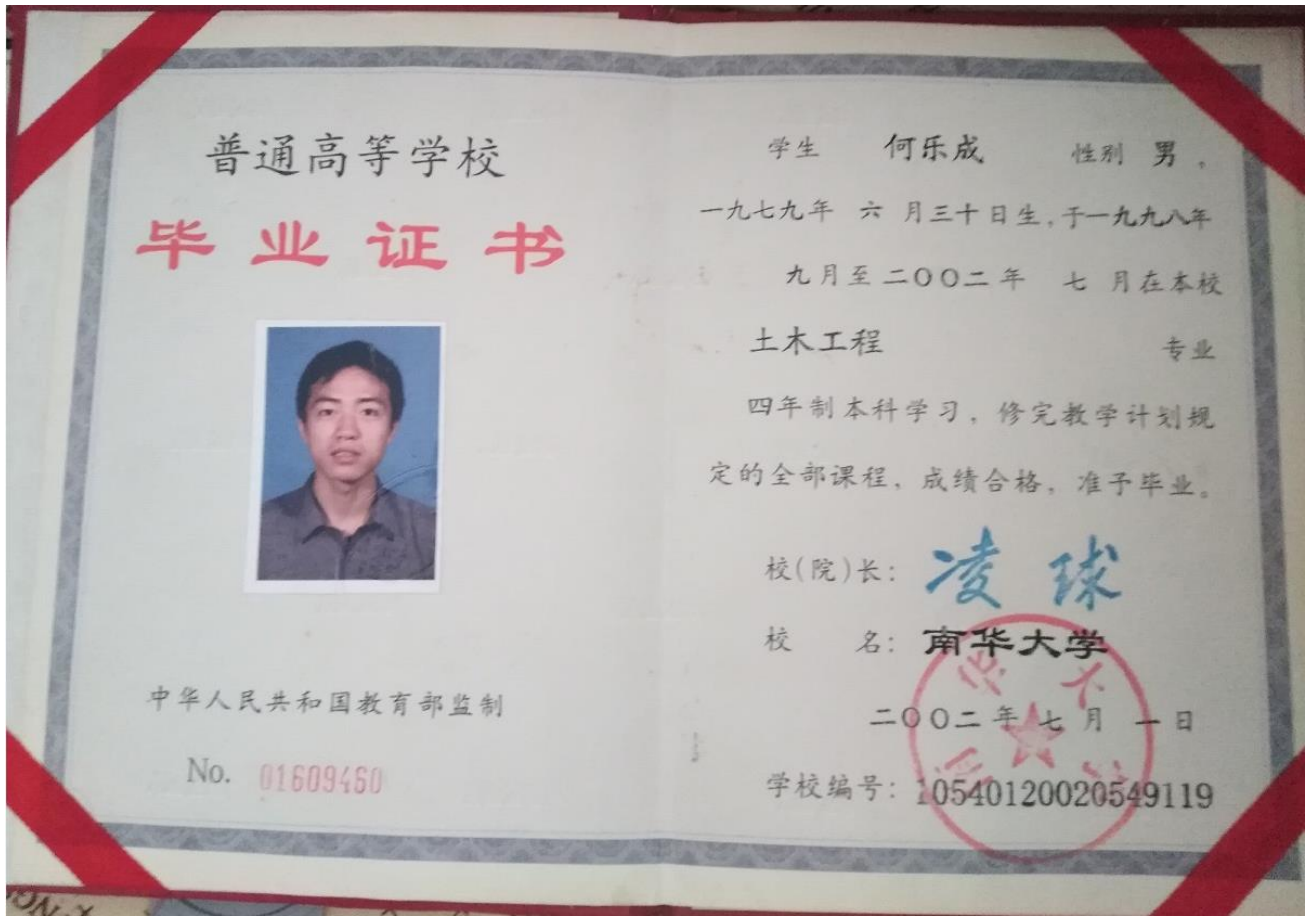 普通高等学校
毕业证书
中华人民共和国教育部监制
No. 01609460
学生 何乐成 性别 男，
一九七九年 六 月三十日生，于一九九八年
九月至二〇〇二年 七 月在本校
土木工程 专业
四年制本科学习，修完教学计划规
定的全部课程，成绩合格，准予毕业。
校(院)长：凌球
校 名：南华大学
二〇〇二年 七 月 一 日
学校编号：10540120020549119